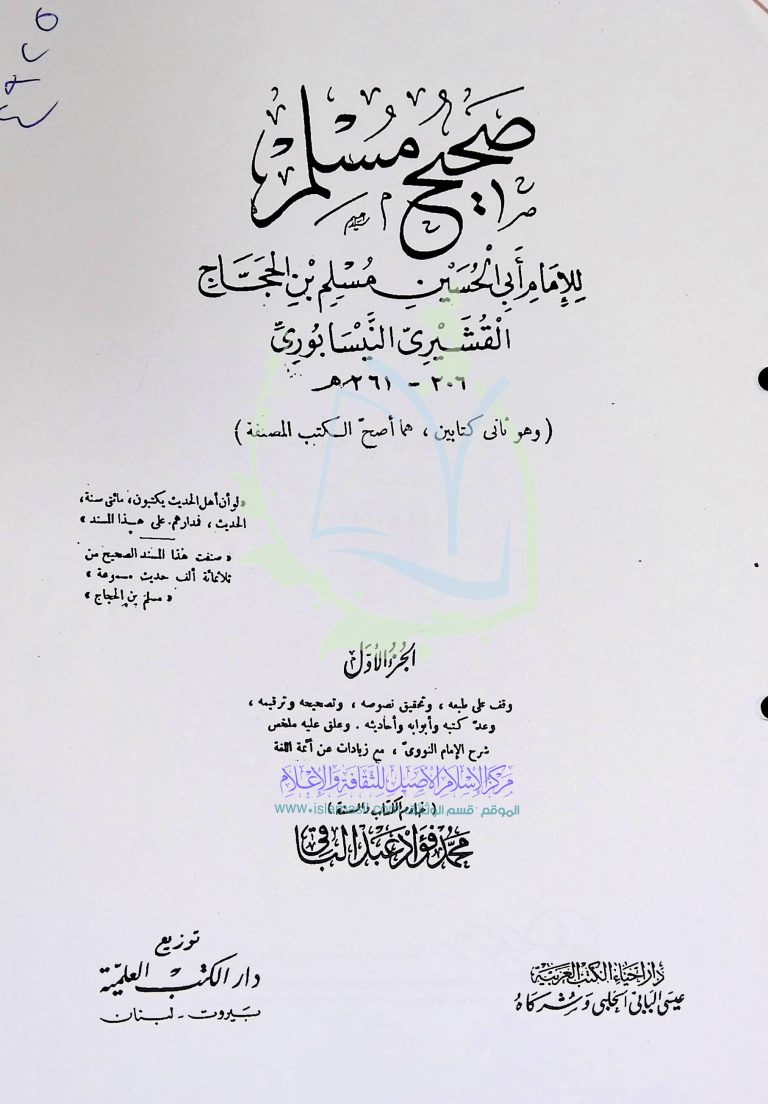 صحيح مسلم
للإمام أبي الحسين مسلم بن الحجاج
القشيري النيسابوري
٢٠٦ - ٢٦١ هـ
( وهو ثانى كتابين ، هما أصح الكتب المصنفة )
« لو أن أهل الحديث يكتبون، مائتى سنة،
الحديث ، فدارهم على هذا المسند »
« صنفت هذا المسند الصحيح من
ثلاثمائة ألف حديث مسموعة »
« مسلم بن الحجاج »
الجزء الأول
وقف على طبعه ، وتحقيق نصوصه ، وتصحيحه وترقيمه ،
وعدّ كتبه وأبوابه وأحاديثه . وعلق عليه ملخص
شرح الإمام النووىّ ، مع زيادات عن أئمة اللغة
مركز الإسلام الأصيل للثقافة والإعلام
( خادم الكتاب والسنة )
الموقع - قسم www.islamasil.com
محمد فؤاد عبد الباقي
توزيع
دار الكتب العلمية
بيروت - لبنان
دار إحياء الكتب العربية
عيسى البابى الحلبي وشركاه